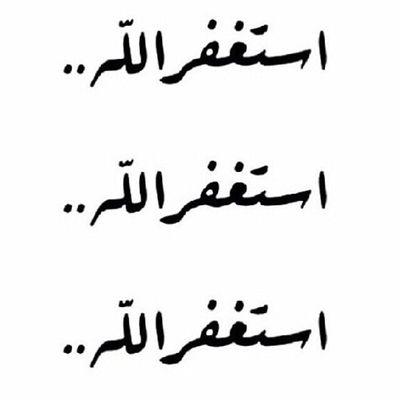 استغفر الله..
استغفر الله..
استغفر الله..